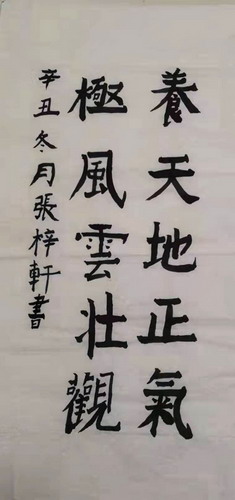 養天地正氣
極風雲壯觀
辛丑冬月張梓軒書